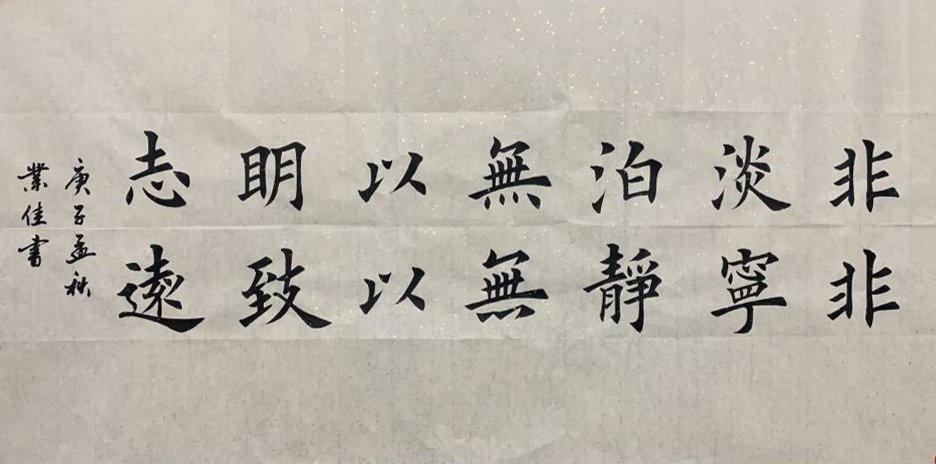 非淡泊無以明志
非寧靜無以致遠
庚子孟秋
業佳書